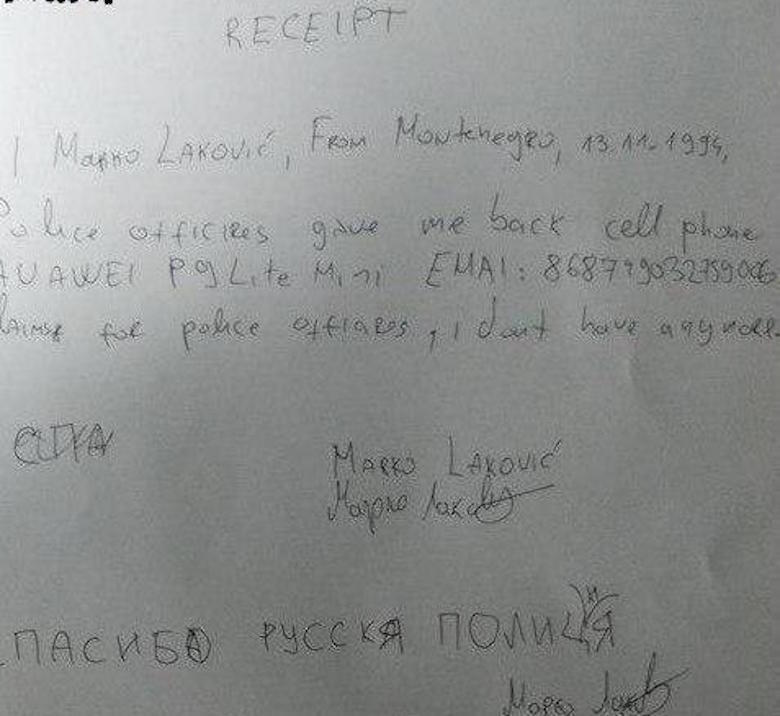 RECEIPT
I Марко Laković, From Montenegro, 13.11.1994,
Police officires gave me back cell phone
HUAWEI P9 Lite Mini EMAI: 868779032759006
Claimse for police officires, i dont have anymore.
Marko Laković
Марко Лаковић
СПАСИБО РУССКЯ ПОЛИЦИЯ
Марко